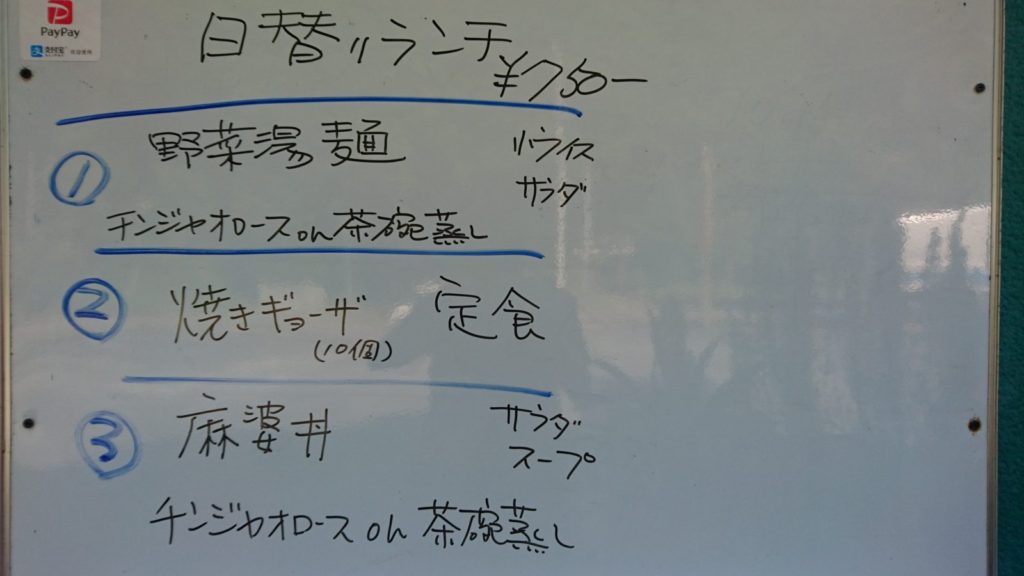 PayPay
支付宝
日替りランチ
¥750ー
① 野菜湯麺 小ライス
サラダ
チンジャオロースon茶碗蒸し
② 焼きギョーザ 定食
(10個)
③ 麻婆丼 サラダ
スープ
チンジャオロースon茶碗蒸し